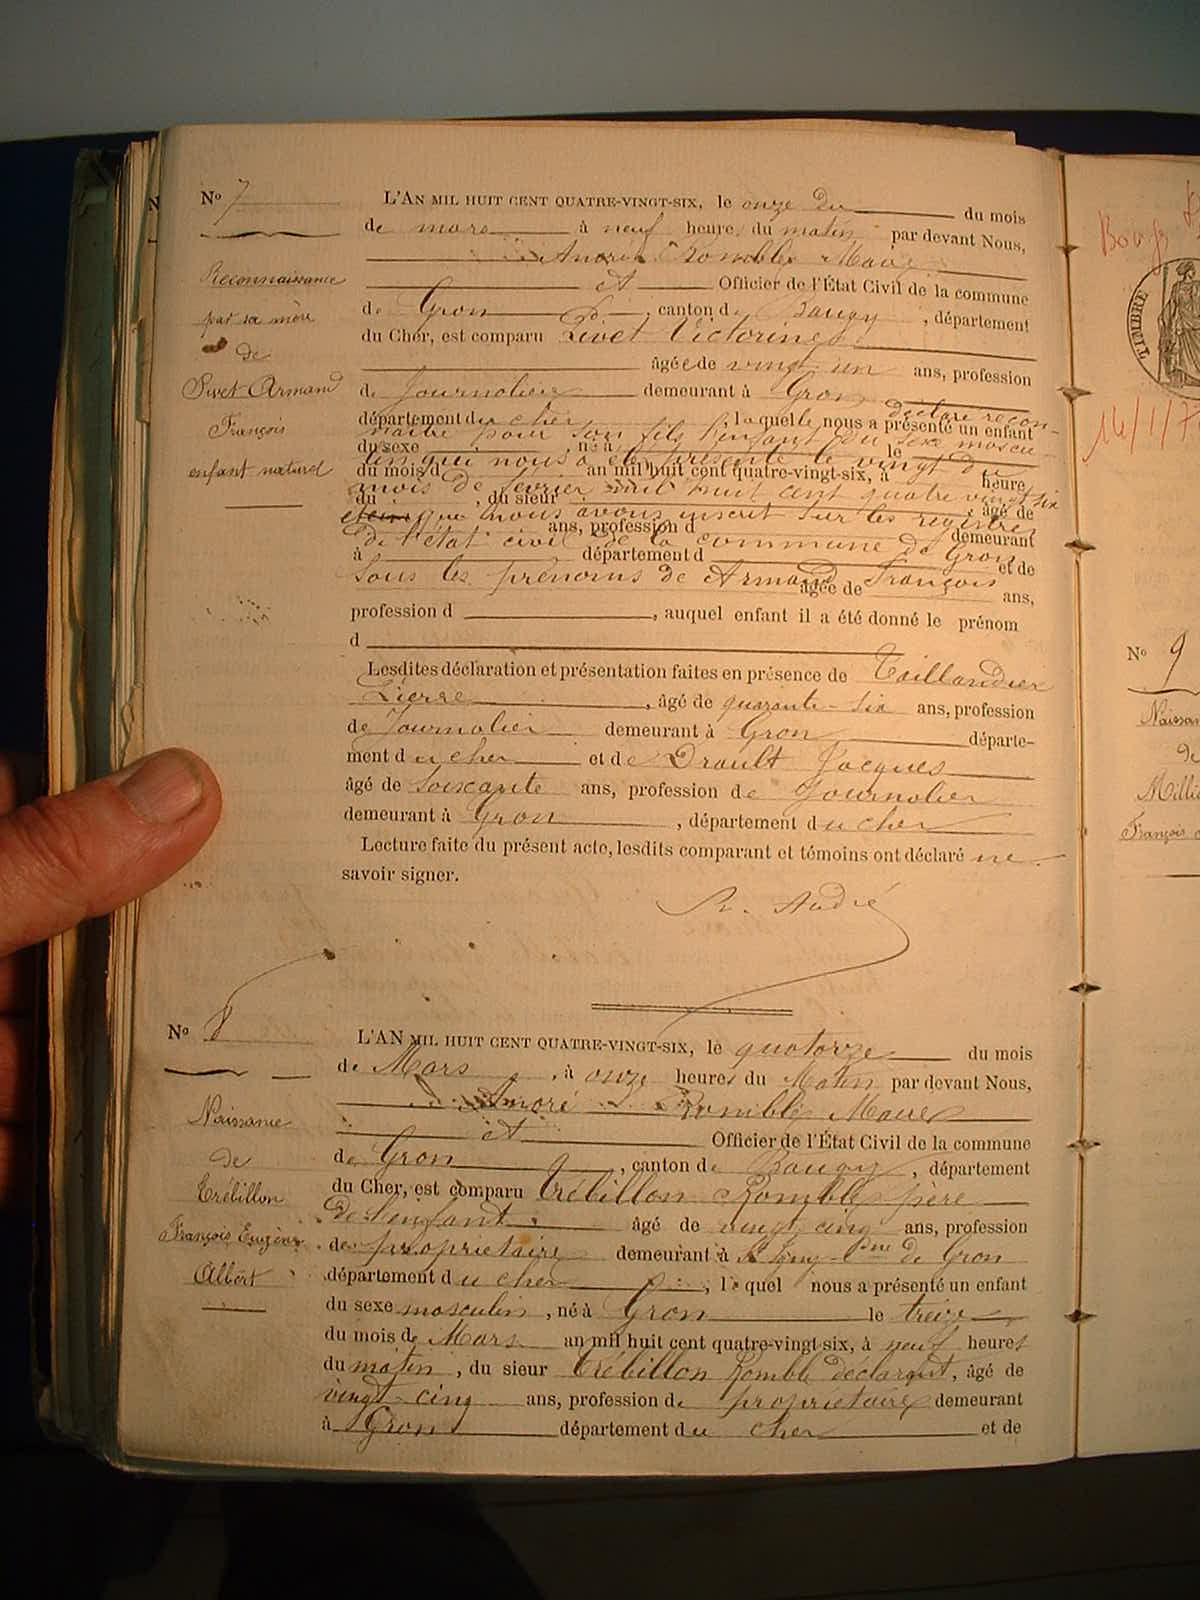 No 7
L'AN MIL HUIT CENT QUATRE-VINGT-SIX, le onze du du mois
de mars à neuf heure, du matin par devant Nous,
André Romble Maire
Reconnaissance
par sa mère
de
Pivet Armand
François
enfant naturel
et Officier de l'État Civil de la commune
de Gron, canton de Baugy, département
du Cher, est comparu Pivet Victorine
âgée de vingt un ans, profession
de Journalière demeurant à Gron
département du cher, laquelle nous a présenté un enfant déclare recon-
naître pour son fils l'enfant du sexe mascu-
du sexe, né à le
lin qui nous a été présenté le vingt du
du mois d an mil huit cent quatre-vingt-six, à heure
mois de fevrier mil huit cent quatre vingt six
du, du sieur, âgé de
que nous avons inscrit sur les registres
ans, profession d demeurant
de l'état civil de la commune de Gron
à département d et de
sous les prénoms de Armand François
âgée de ans,
profession d, auquel enfant il a été donné le prénom
d
Lesdites déclaration et présentation faites en présence de Taillandier
Pierre, âgé de quarante-six ans, profession
de Journalier demeurant à Gron départe-
ment du cher et de Drault Jacques
âgé de soixante ans, profession de Journalier
demeurant à Gron, département du cher
Lecture faite du présent acte, lesdits comparant et témoins ont déclaré ne
savoir signer.
R. André
No 8
L'AN MIL HUIT CENT QUATRE-VINGT-SIX, le quatorze du mois
de Mars, à onze heures du Matin par devant Nous,
André Romble Maire
Naissance
de
Trébillon
François Eugène
Albert
et Officier de l'État Civil de la commune
de Gron, canton de Baugy, département
du Cher, est comparu Trébillon Romble père
de l'enfant âgé de vingt cinq ans, profession
de propriétaire demeurant à de Gron
département du cher, lequel nous a présenté un enfant
du sexe masculin, né à Gron le treize
du mois de Mars an mil huit cent quatre-vingt-six, à neuf heures
du matin, du sieur Trébillon Romble déclarant, âgé de
vingt-cinq ans, profession de propriétaire demeurant
à Gron département du cher et de
TIMBRE
14/1/7
No 9
Naissan
de
François